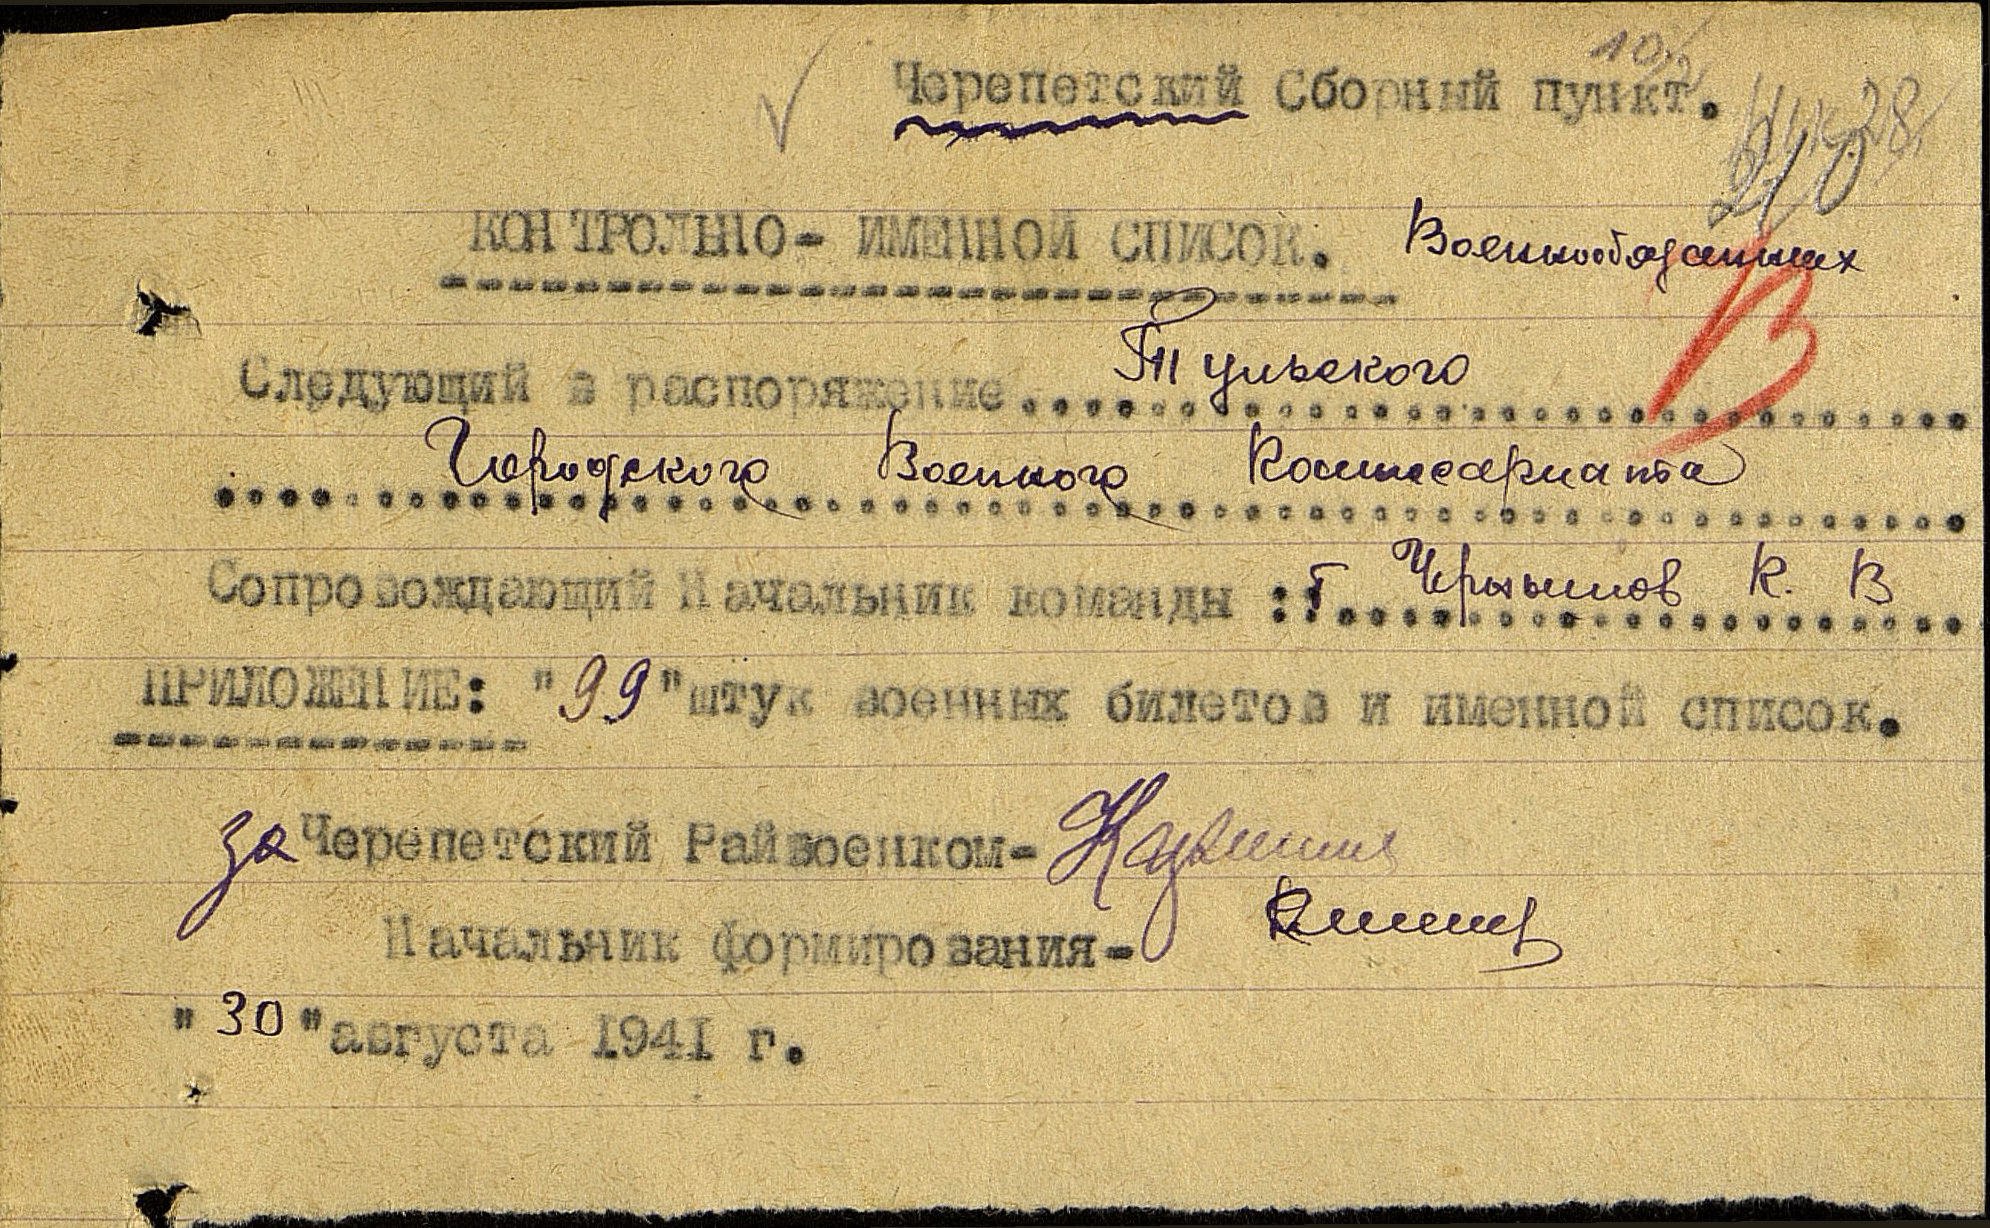 Черепетский Сборный пункт.
КОНТРОЛЬНО- ИМЕННОЙ СПИСОК. Военнообязанных
В
Следующий в распоряжение.....Тульского
.... Городского Военного Комиссариата
Сопровождающий Начальник команды :т. Чернышов К. В
ПРИЛОЖЕНИЕ: "99" штук военных билетов и именной список.
за Черепетский Райвоенком-
Начальник формирования-
"30" августа 1941 г.